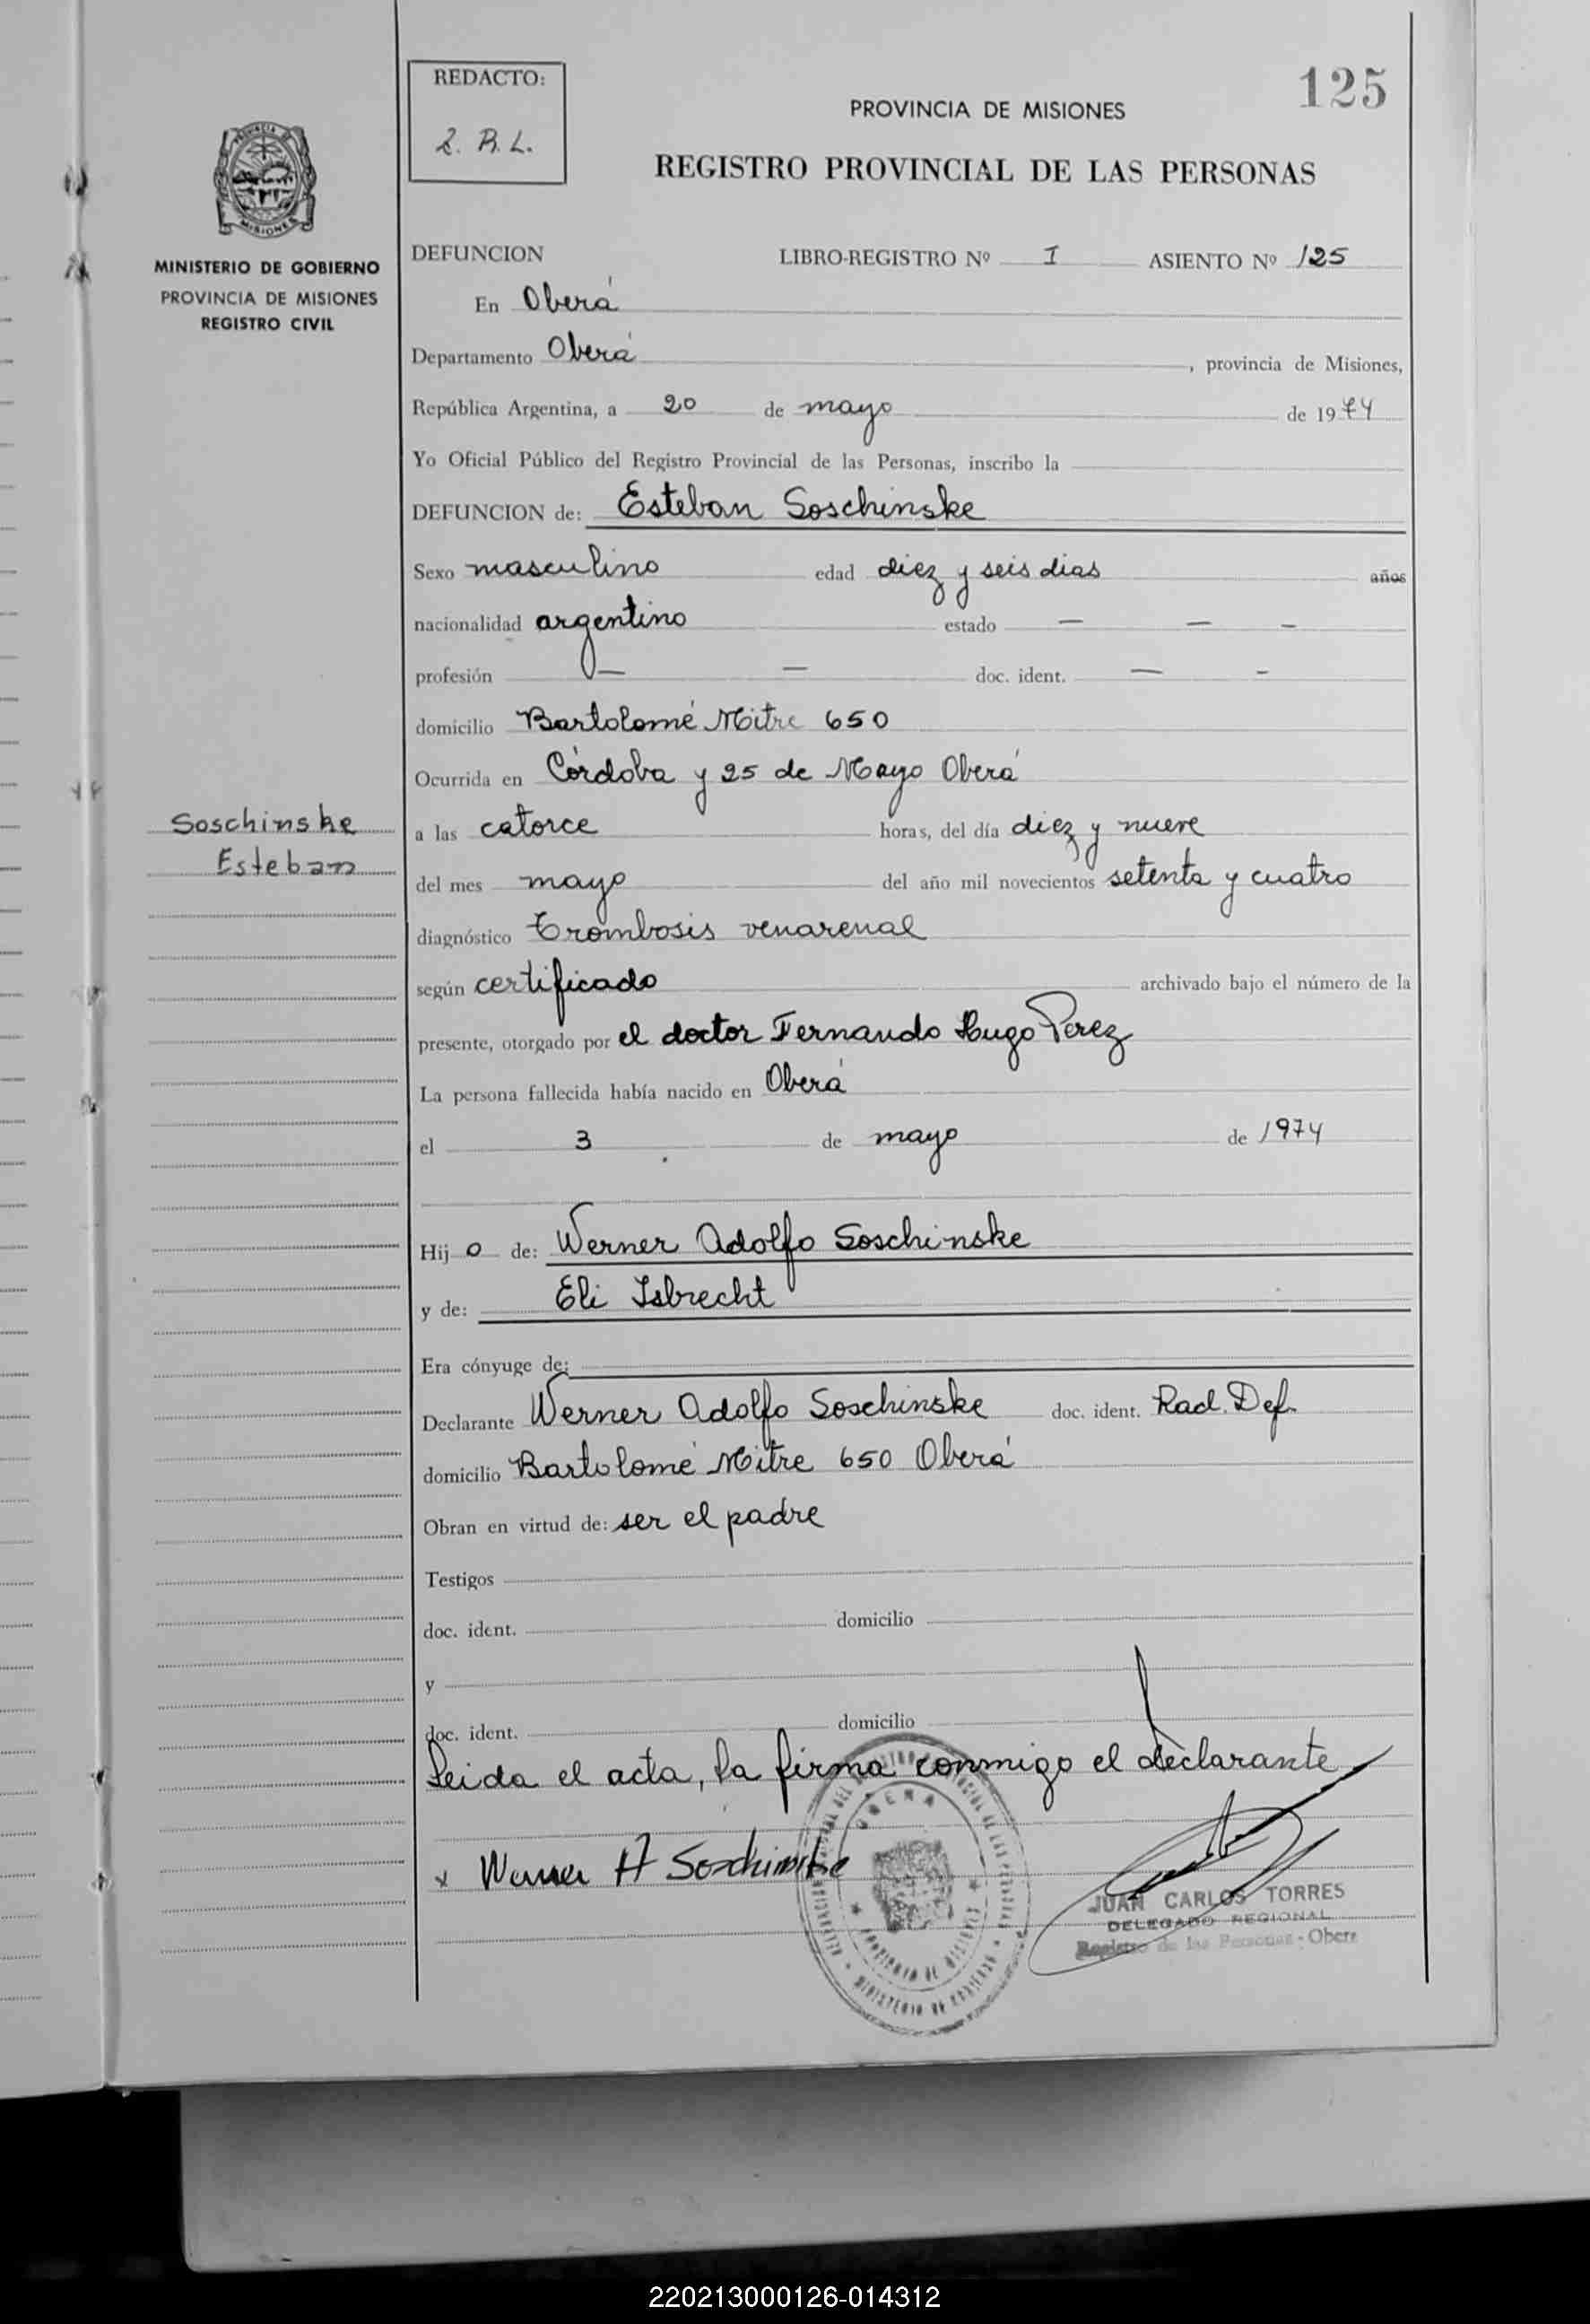 125
REDACTO:
PROVINCIA DE MISIONES
REGISTRO PROVINCIAL DE LAS PERSONAS
MINISTERIO DE GOBIERNO
PROVINCIA DE MISIONES
REGISTRO CIVIL
DEFUNCION LIBRO-REGISTRO Nº I ASIENTO Nº 125
En Oberá
Departamento Oberá, provincia de Misiones,
República Argentina, a 20 de mayo de 1974
Yo Oficial Público del Registro Provincial de las Personas, inscribo la
DEFUNCION de: Esteban Soschinske
Sexo masculino edad diez y seis dias años
nacionalidad argentino estado — — –
profesión — — doc. ident. — –
domicilio Bartolomé Mitre 650
Ocurrida en Córdoba y 25 de Mayo Oberá
Soschinske
Esteban
a las catorce horas, del día diez y nueve
del mes mayo del año mil novecientos setenta y cuatro
diagnóstico Trombosis venarenal
según certificado archivado bajo el número de la
presente, otorgado por el doctor Fernando Hugo Perez
La persona fallecida había nacido en Oberá
el 3 de mayo de 1974
Hij o de: Werner Adolfo Soschinske
y de: Eli Isbrecht
Era cónyuge de:
Declarante Werner Adolfo Soschinske doc. ident. Rad. Def.
domicilio Bartolomé Mitre 650 Oberá
Obran en virtud de: ser el padre
Testigos
doc. ident. domicilio
y
doc. ident. domicilio
Leida el acta, la firma conmigo el declarante
x Werner A Soschinske
OBERA
PROVINCIA DE MISIONES
MINISTERIO DE GOBIERNO
JUAN CARLOS TORRES
DELEGADO REGIONAL
Registro de las Personas - Obera
220213000126-014312